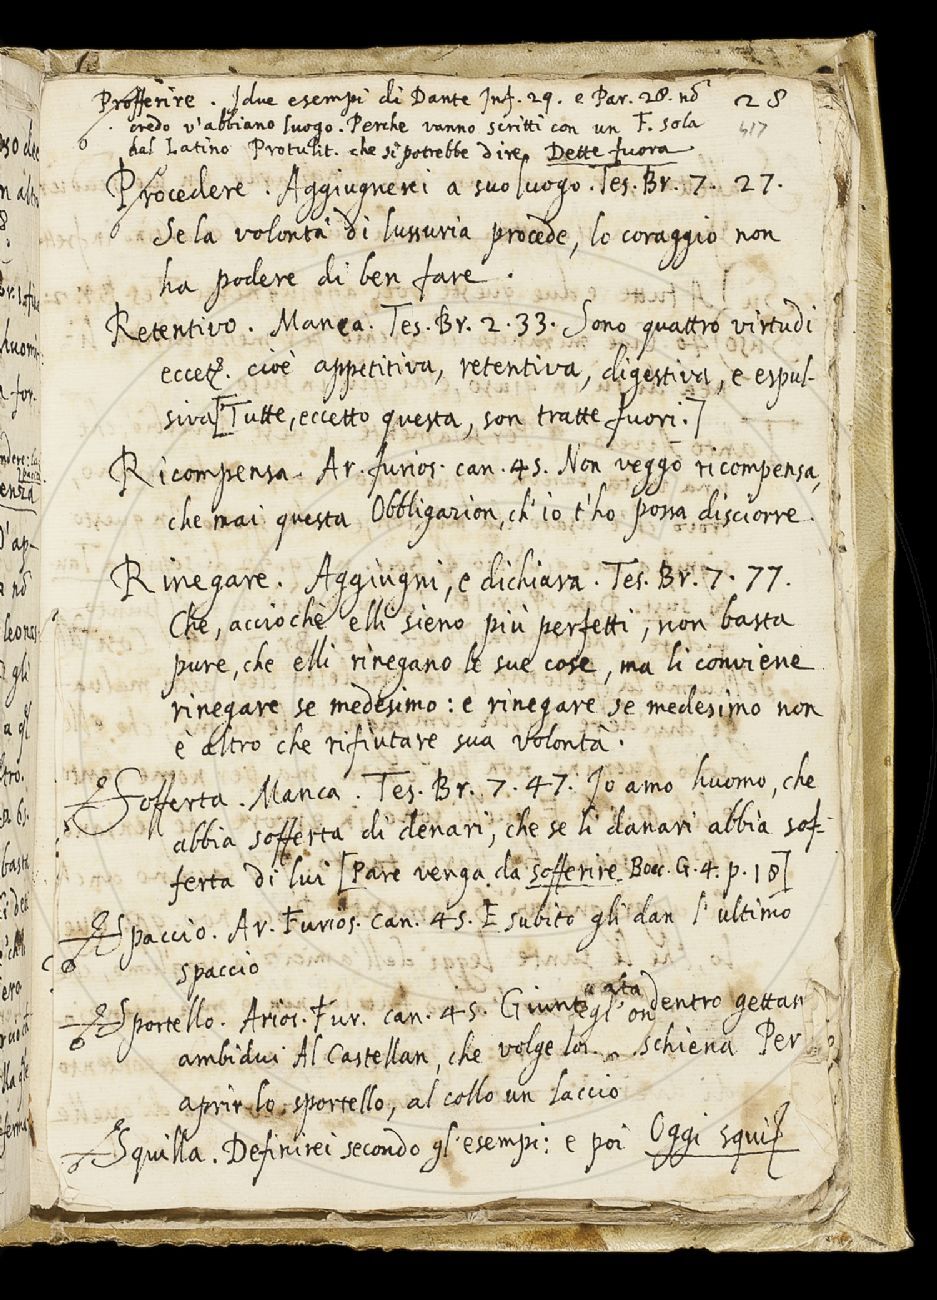 Profferire. I due esempi di Dante Inf. 29. e Par. 28. nō 28
credo v'abbiano luogo. Perche vanno scritti con un F. sola 417
dal Latino Protulit. che si potrebbe dire Dette fuora
Procedere. Aggiugnerei a suo luogo. Tes. Br. 7. 27.
Se la volontà di lussuria procede, lo coraggio non
ha podere di ben fare.
Retentivo. Manca. Tes. Br. 2. 33. Sono quattro virtudi
eccetᵃ. cioè appetitiva, retentiva, digestiva, e espul-
siva [Tutte, eccetto questa, son tratte fuori.]
Ricompensa. Ar. furios. can. 45. Non veggo ricompensa,
che mai questa Obbligazion, ch'io t'ho possa disciorre.
Rinegare. Aggiugni, e dichiara. Tes. Br. 7. 77.
Che, accioche elli sieno più perfetti, non basta
pure, che elli rinegano le sue cose, ma li conviene
rinegare se medesimo: e rinegare se medesimo non
è altro che rifiutare sua volontà.
Sofferta. Manca. Tes. Br. 7. 47. Io amo huomo, che
abbia sofferta di denari, che se li danari abbia sof-
ferta di lui [Pare venga da sofferire Bocc. G. 4. p. 18]
Spaccio. Ar. Furios. can. 45. E subito gli dan l'ultimo
spaccio
Sportello. Arios. Fur. can. 45. dentro gettan
ambidui Al Castellan, che volge schiena Per
aprir lo sportello, al collo un laccio
Squilla. Definirei secondo gl'esempi: e poi Oggi squilᵃ